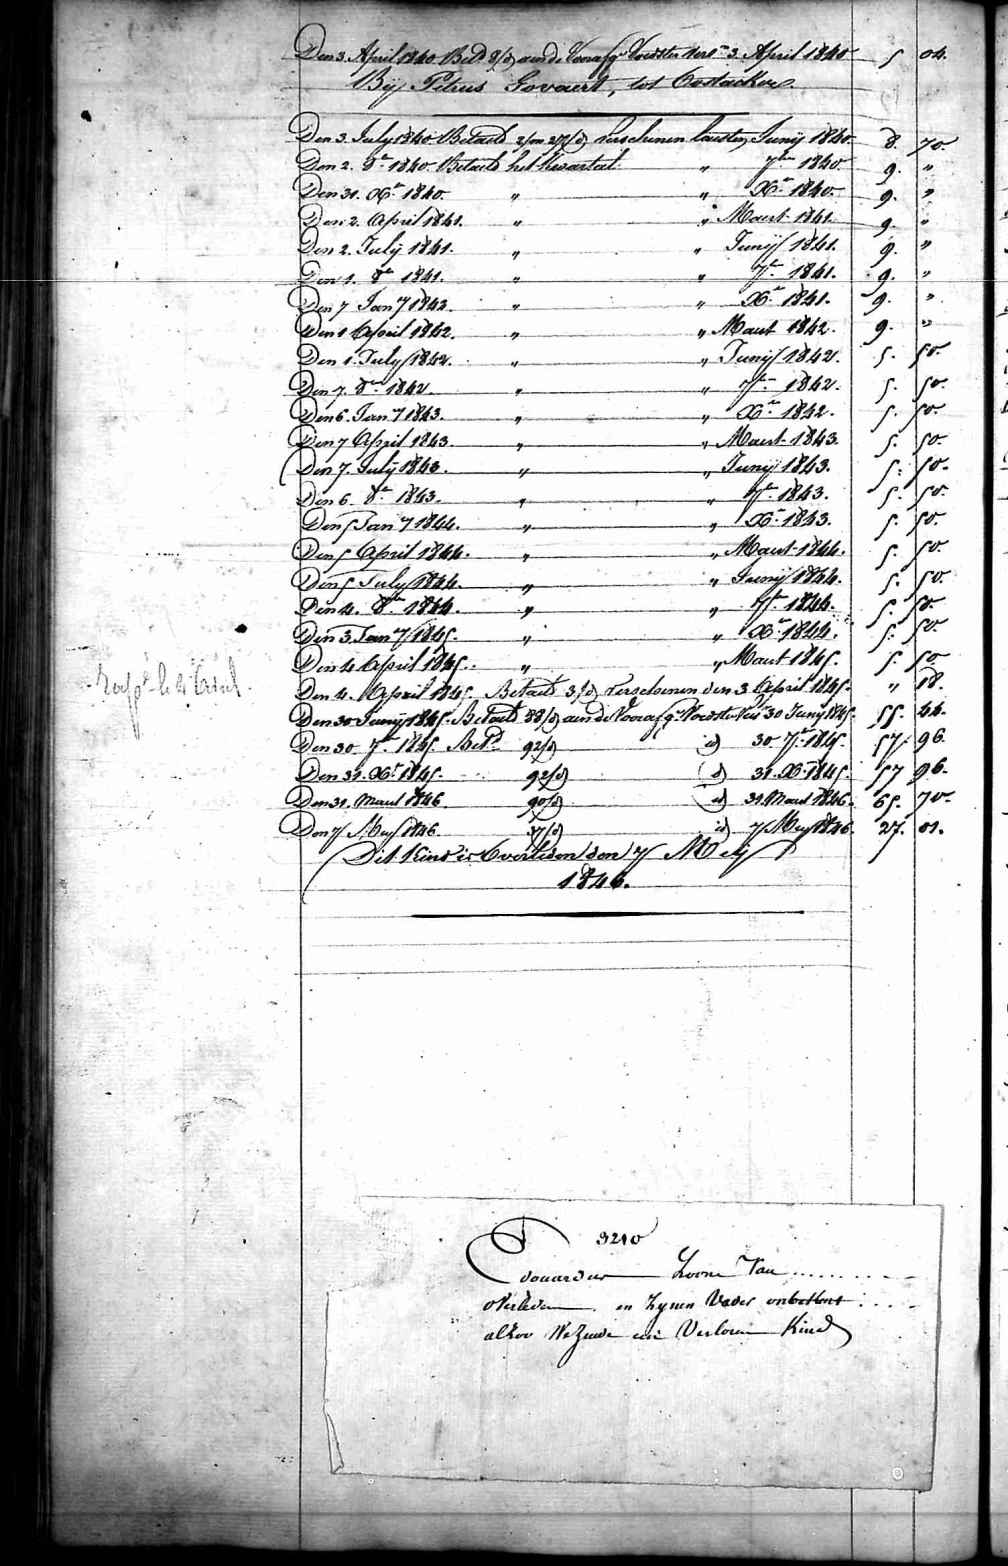 Den 3. April 1840 Bet.d 8/d aan de Voorafg.e Voedster Vers.n 3. April 1840 5 04.
Bij Petrus Govaert, tot Oostacker.
Den 3. July 1840 Betaelt 2/m 27/d Verschenen laatsten Junij 1840 8. 70.
Den 2. 8.er 1840. Betaelt het Kwartael „ 7.er 1840. 9. „
Den 31. X.er 1840. „ „ X.er 1840. 9. „
Den 2. April 1841. „ „ Maert 1841. 9. „
Den 2. July 1841. „ „ Junij 1841. 9. „
Den 1. 8.er 1841. „ „ 7.er 1841. 9. „
Den 7 Jan.y 1842. „ „ X.er 1841. 9. „
Den 1 April 1842. „ „ Maert 1842. 9. „
Den 1. July 1842. „ „ Junij 1842. 5. 50.
Den 7. 8.er 1842. „ „ 7.er 1842. 5. 50.
Den 6. Jan.y 1843. „ „ X.er 1842. 5. 50
Den 7 April 1843. „ „ Maert 1843. 5. 50.
Den 7. July 1843. „ „ Junij 1843. 5. 50.
Den 6. 8.er 1843. „ „ 7.er 1843. 5. 50.
Den 5 Jan.y 1844. „ „ X.er 1843. 5. 50.
Den 5 April 1844. „ „ Maert 1844. 5. 50.
Den 5 July 1844. „ „ Junij 1844. 5. 50.
Den 4. 8.er 1844. „ „ 7.er 1844. 5. 50.
Den 3. Jan.y 1845. „ „ X.er 1844. 5. 50.
Den 4 April 1845. „ „ Maert 1845. 5. 50.
Den 4. April 1845. Betaelt 3/d Verschenen den 3 April 1845. „ 18.
Den 30 Junij 1845. Betaelt 88/d aan de Voorafg.e Voedster Vers 30 Junij 1845. 55. 44.
Den 30 7.er 1845. Bet.d 92/d id 30 7.er 1845. 57. 96.
Den 31. X.er 1845. 92/d id 31. X.er 1845. 57 96.
Den 31. Maert 1846. 90/d id 31 Maert 1846. 65. 70.
Den 7 Mey 1846. 37/d id 7 Mey 1846. 27. 01.
Dit Kind is Overleden den 7 Meij
1846.
3210
Edouardus Zoone Van ..........
Overleden en Zynen Vader onbekent ....
alzoo Wezende een Verloren Kind